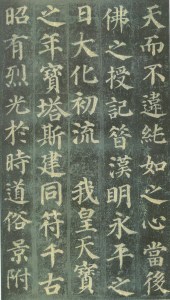 天而不違純如之心當後
佛之授記昔漢明永平之
日大化初流　我皇天寶
之年寶塔斯建同符千古
昭有烈光於時道俗景附